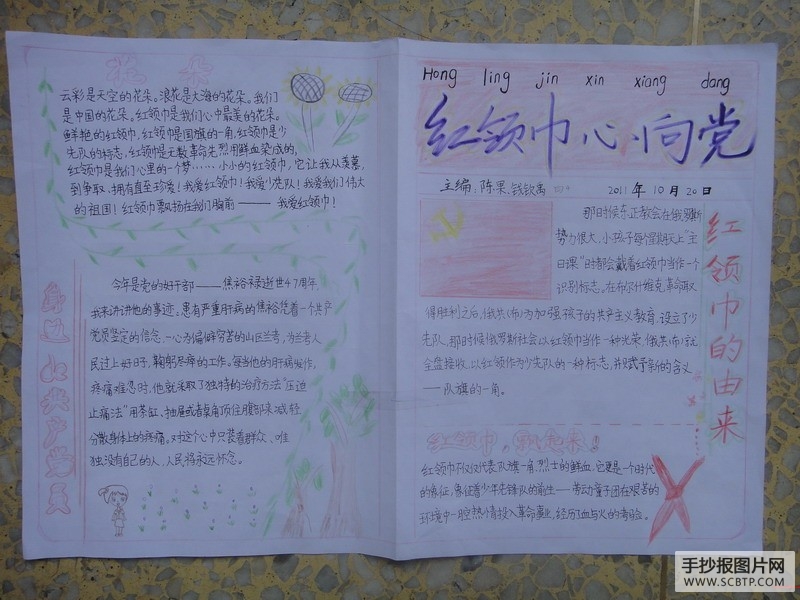 花朵
云彩是天空的花朵。浪花是大海的花朵。我们
是中国的花朵。红领巾是我们心中最美的花朵。
鲜艳的红领巾，红领巾是国旗的一角，红领巾是少
先队的标志，红领巾是无数革命先烈用鲜血染成的，
红领巾是我们心里的一个梦……小小的红领巾，它让我从羡慕，
到争取、拥有直至珍爱！我爱红领巾！我爱少先队！我爱我们伟大
的祖国！红领巾飘扬在我们胸前——我爱红领巾！
身边的共产党员
今年是党的好干部——焦裕禄逝世47周年，
我来讲讲他的事迹。患有严重肝病的焦裕禄凭着一个共产
党员坚定的信念，一心为偏僻穷苦的山区兰考，为兰考人
民过上好日子，鞠躬尽瘁的工作。每当他的肝病发作，
疼痛难忍时，他就采取了独特的治疗方法"压迫
止痛法"用茶缸、抽屉或者桌角顶住腹部来减轻、
分散身体上的疼痛。对这个心中只装着群众、唯
独没有自己的人，人民将永远怀念。
Hong ling jin xin xiang dang
红领巾心向党
主编：陈果、钱钦禹
2011年10月20日
红领巾的由来
那时候东正教会在俄罗斯
势力很大，小孩子每个星期天上"主
日课"时都会戴着红领巾当作一个
识别标志。在布尔什维克革命取
得胜利之后，俄共(布)为加强孩子的共产主义教育，设立了少
先队，那时候俄罗斯社会以红领巾当作一种光荣，俄共(布)就
全盘接收，以红领作为少先队的一种标志，并赋予新的含义
——队旗的一角。
红领巾，飘起来！
红领巾不仅仅代表队旗一角，烈士的鲜血，它更是一个时代
的象征，象征着少年先锋队的前生——劳动童子团在艰苦的
环境中一腔热情投入革命事业，经历了血与火的考验。
手抄报图片网
WWW.SCBTP.COM